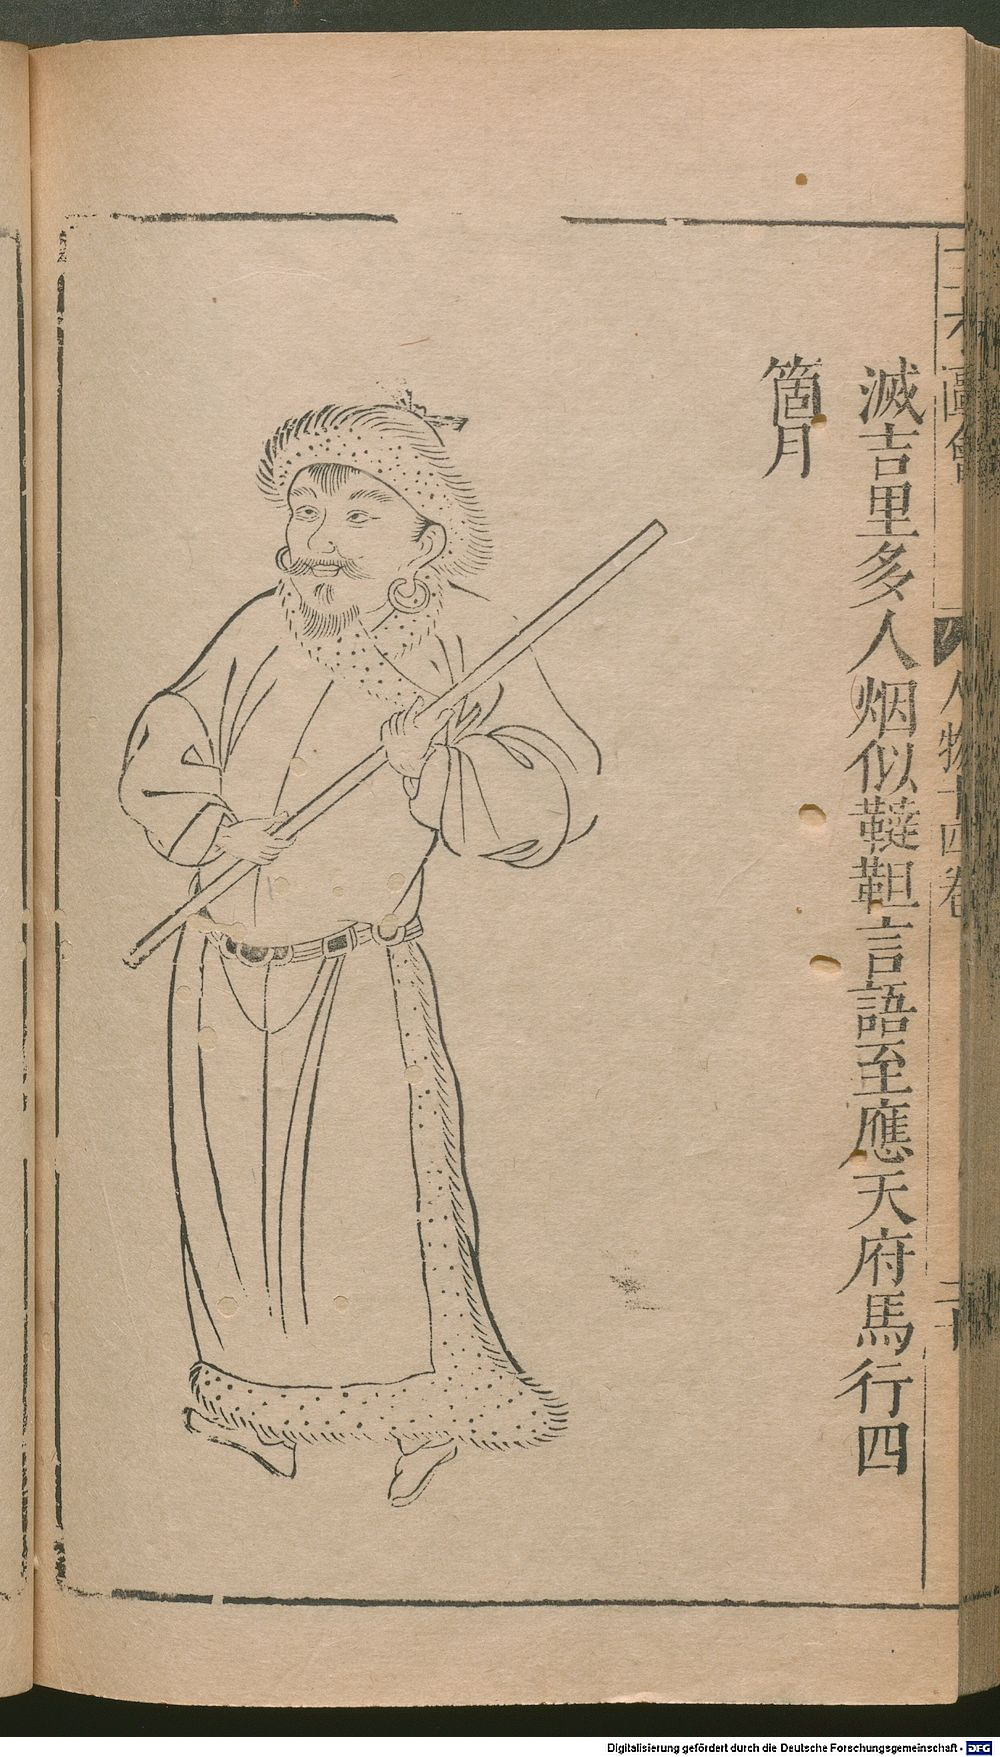 滅吉里多人烟似韃靼言語至應天府馬行四
箇月
人物十四卷
Digitalisierung gefördert durch die Deutsche Forschungsgemeinschaft - DFG